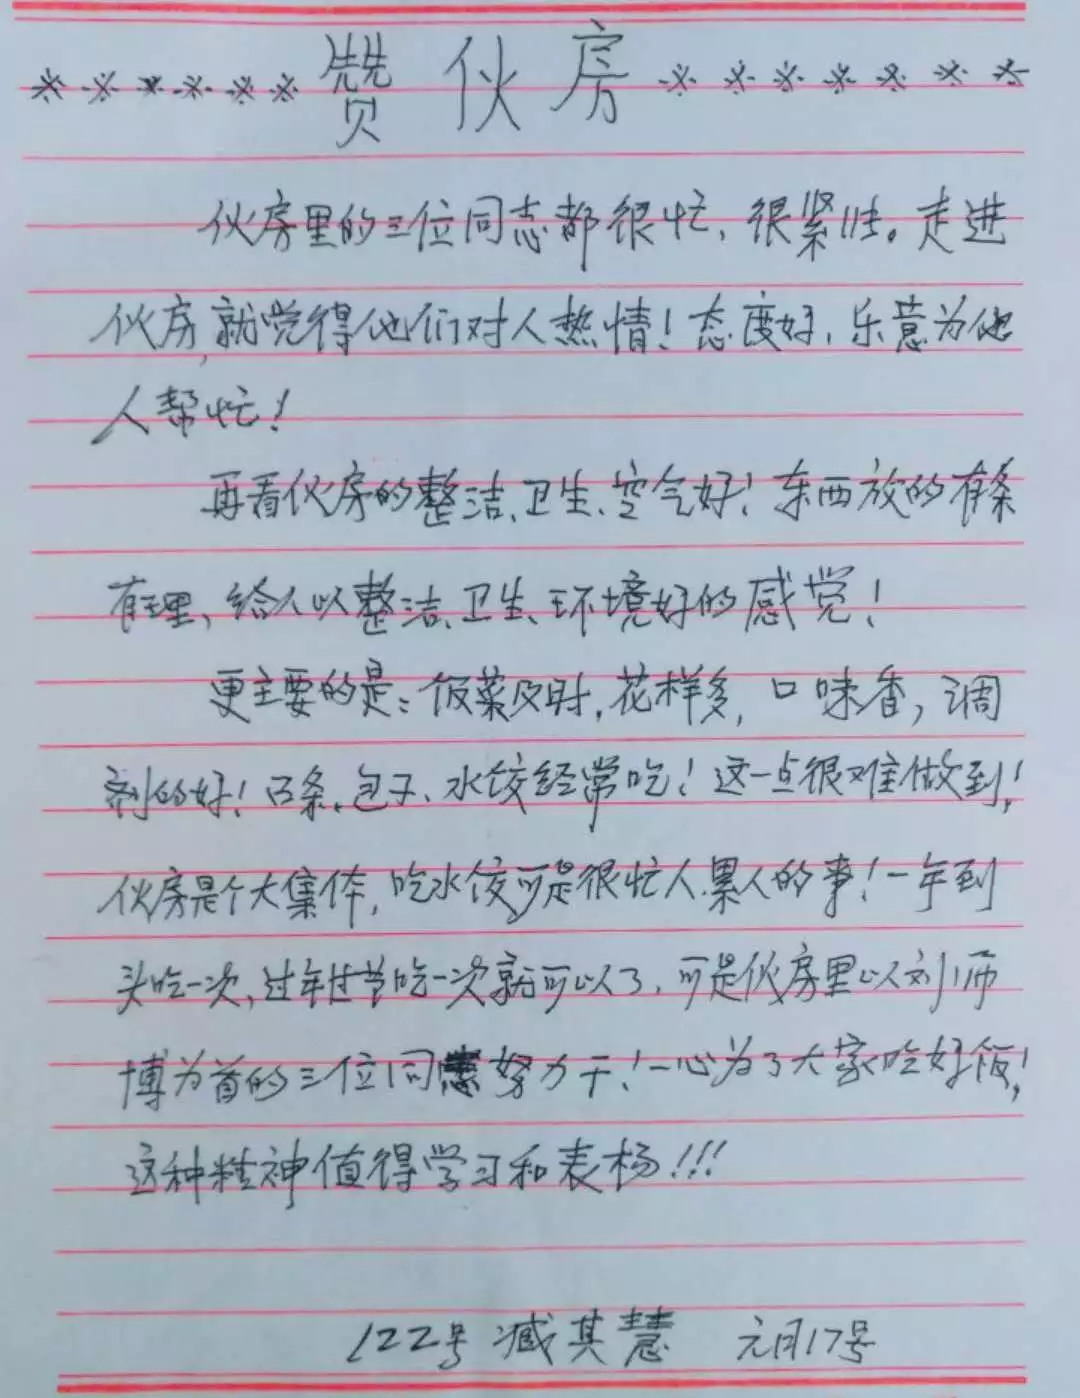 赞伙房
伙房里的三位同志都很忙、很紧张。走进
伙房,就觉得他们对人热情！态度好,乐意为他
人帮忙！
再看伙房的整洁、卫生、空气好！东西放的有条
有理,给人以整洁、卫生、环境好的感觉！
更主要的是：饭菜及时,花样多,口味香,调
剂的好！面条、包子、水饺经常吃！这一点很难做到！
伙房是个大集体,吃水饺可是很忙人、累人的事！一年到
头吃一次,过年过节吃一次就可以了,可是伙房里以刘师
傅为首的三位同志努力干！一心为了大家吃好饭！
这种精神值得学习和表杨!!!
122号 臧其慧 元月17号